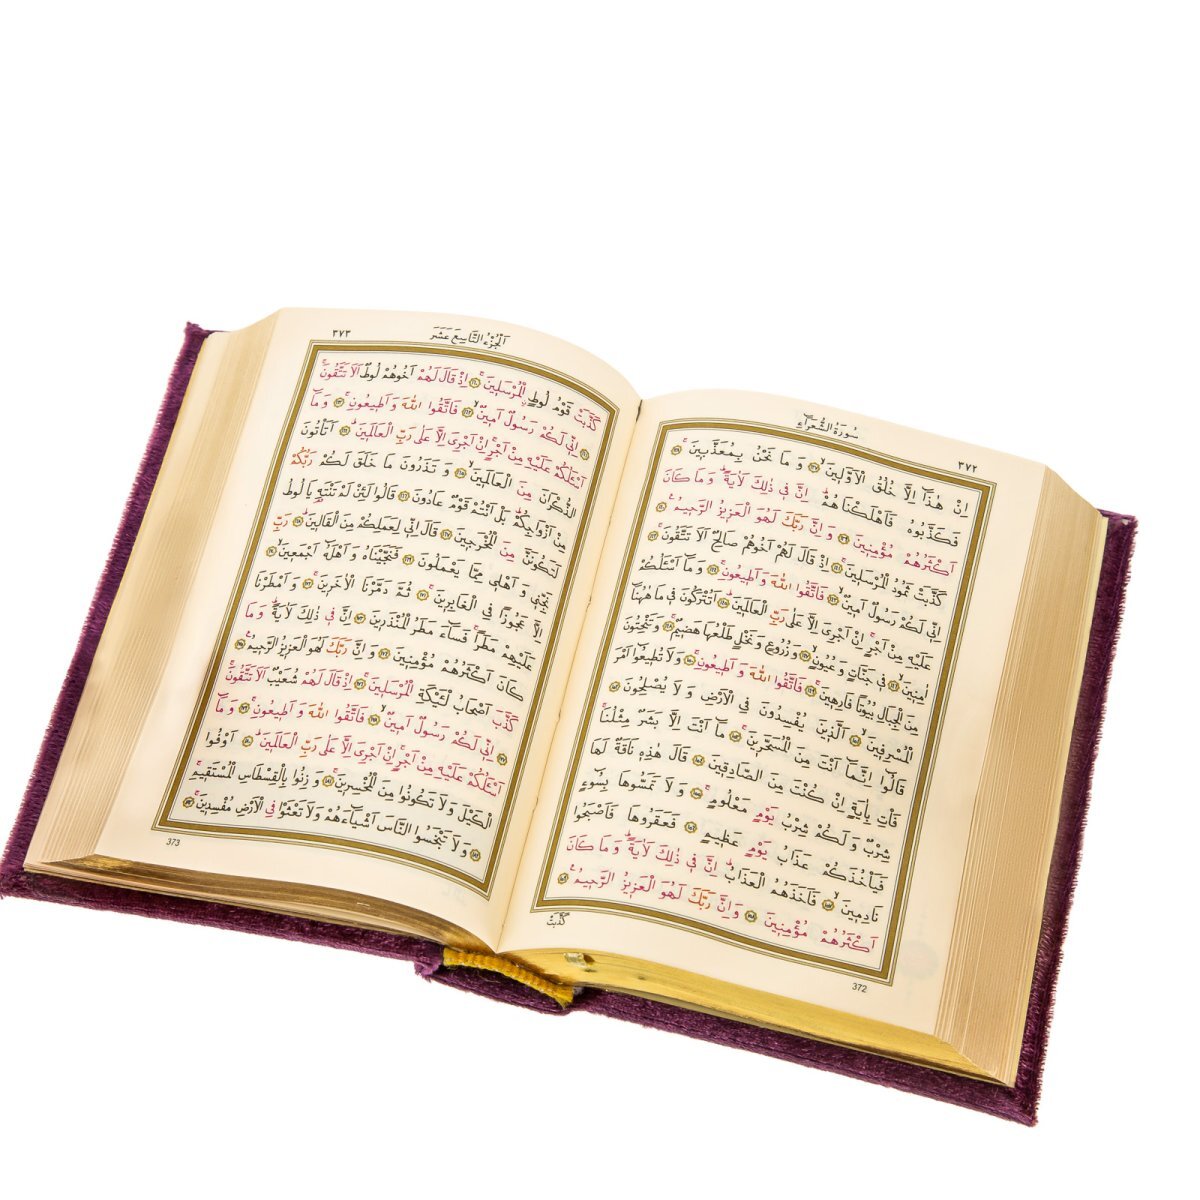 سُورَةُ الشُّعَرَاءِ
٣٧٢
اِنْ هٰذَٓا اِلَّا خُلُقُ الْاَوَّل۪ينَۙ ﴿١٣٧﴾ وَ مَا نَحْنُ بِمُعَذَّب۪ينَۚ ﴿١٣٨﴾
فَكَذَّبُوهُ فَاَهْلَكْنَاهُمْۜ اِنَّ ف۪ي ذٰلِكَ لَاٰيَةًۜ وَ مَا كَانَ
اَكْثَرُهُمْ مُؤْمِن۪ينَ ﴿١٣٩﴾ وَ اِنَّ رَبَّكَ لَهُوَ الْعَز۪يزُ الرَّح۪يمُ۟ ﴿١٤٠﴾
كَذَّبَتْ ثَمُودُ الْمُرْسَل۪ينَۚ ﴿١٤١﴾ اِذْ قَالَ لَهُمْ اَخُوهُمْ صَالِحٌ اَلَا تَتَّقُونَۚ ﴿١٤٢﴾
اِنّ۪ي لَكُمْ رَسُولٌ اَم۪ينٌۙ ﴿١٤٣﴾ فَاتَّقُوا اللّٰهَ وَ اَط۪يعُونِۚ ﴿١٤٤﴾ وَ مَٓا اَسْـَٔلُكُمْ
عَلَيْهِ مِنْ اَجْرٍۚ اِنْ اَجْرِيَ اِلَّا عَلٰى رَبِّ الْعَالَم۪ينَۜ ﴿١٤٥﴾ اَتُتْرَكُونَ ف۪ي مَا هٰهُنَٓا
اٰمِن۪ينَۙ ﴿١٤٦﴾ ف۪ي جَنَّاتٍ وَ عُيُونٍۙ ﴿١٤٧﴾ وَ زُرُوعٍ وَ نَخْلٍ طَلْعُهَا هَض۪يمٌۚ ﴿١٤٨﴾ وَ تَنْحِتُونَ
مِنَ الْجِبَالِ بُيُوتًا فَارِه۪ينَۚ ﴿١٤٩﴾ فَاتَّقُوا اللّٰهَ وَ اَط۪يعُونِۚ ﴿١٥٠﴾ وَ لَا تُط۪يعُٓوا اَمْرَ
الْمُسْرِف۪ينَۙ ﴿١٥١﴾ اَلَّذ۪ينَ يُفْسِدُونَ فِي الْاَرْضِ وَ لَا يُصْلِحُونَ ﴿١٥٢﴾
قَالُٓوا اِنَّمَٓا اَنْتَ مِنَ الْمُسَحَّر۪ينَۚ ﴿١٥٣﴾ مَٓا اَنْتَ اِلَّا بَشَرٌ مِثْلُنَاۚ
فَأْتِ بِاٰيَةٍ اِنْ كُنْتَ مِنَ الصَّادِق۪ينَ ﴿١٥٤﴾ قَالَ هٰذِه۪ نَاقَةٌ لَهَا
شِرْبٌ وَ لَكُمْ شِرْبُ يَوْمٍ مَعْلُومٍۚ ﴿١٥٥﴾ وَ لَا تَمَسُّوهَا بِسُٓوءٍ
فَيَأْخُذَكُمْ عَذَابُ يَوْمٍ عَظ۪يمٍ ﴿١٥٦﴾ فَعَقَرُوهَا فَاَصْبَحُوا
نَادِم۪ينَۙ ﴿١٥٧﴾ فَاَخَذَهُمُ الْعَذَابُۜ اِنَّ ف۪ي ذٰلِكَ لَاٰيَةًۜ وَ مَا كَانَ
اَكْثَرُهُمْ مُؤْمِن۪ينَ ﴿١٥٨﴾ وَ اِنَّ رَبَّكَ لَهُوَ الْعَز۪يزُ الرَّح۪يمُ۟ ﴿١٥٩﴾
كَذَّبَتْ
372
اَلْجُزْءُ التَّاسِعَ عَشَرَ
٣٧٣
كَذَّبَتْ قَوْمُ لُوطٍ الْمُرْسَل۪ينَۚ ﴿١٦٠﴾ اِذْ قَالَ لَهُمْ اَخُوهُمْ لُوطٌ اَلَا تَتَّقُونَۚ
﴿١٦١﴾ اِنّ۪ي لَكُمْ رَسُولٌ اَم۪ينٌۙ ﴿١٦٢﴾ فَاتَّقُوا اللّٰهَ وَ اَط۪يعُونِۚ ﴿١٦٣﴾ وَ مَٓا
اَسْـَٔلُكُمْ عَلَيْهِ مِنْ اَجْرٍۚ اِنْ اَجْرِيَ اِلَّا عَلٰى رَبِّ الْعَالَم۪ينَۜ ﴿١٦٤﴾ اَتَأْتُونَ
الذُّكْرَانَ مِنَ الْعَالَم۪ينَۙ ﴿١٦٥﴾ وَ تَذَرُونَ مَا خَلَقَ لَكُمْ رَبُّكُمْ
مِنْ اَزْوَاجِكُمْۜ بَلْ اَنْتُمْ قَوْمٌ عَادُونَ ﴿١٦٦﴾ قَالُوا لَئِنْ لَمْ تَنْتَهِ يَا لُوطُ
لَتَكُونَنَّ مِنَ الْمُخْرَج۪ينَ ﴿١٦٧﴾ قَالَ اِنّ۪ي لِعَمَلِكُمْ مِنَ الْقَال۪ينَۜ ﴿١٦٨﴾ رَبِّ
نَجِّن۪ي وَ اَهْل۪ي مِمَّا يَعْمَلُونَ ﴿١٦٩﴾ فَنَجَّيْنَاهُ وَ اَهْلَهُٓ اَجْمَع۪ينَۙ ﴿١٧٠﴾
اِلَّا عَجُوزًا فِي الْغَابِر۪ينَۚ ﴿١٧١﴾ ثُمَّ دَمَّرْنَا الْاٰخَر۪ينَۚ ﴿١٧٢﴾ وَ اَمْطَرْنَا
عَلَيْهِمْ مَطَرًاۚ فَسَٓاءَ مَطَرُ الْمُنْذَر۪ينَ ﴿١٧٣﴾ اِنَّ ف۪ي ذٰلِكَ لَاٰيَةًۜ وَ مَا
كَانَ اَكْثَرُهُمْ مُؤْمِن۪ينَ ﴿١٧٤﴾ وَ اِنَّ رَبَّكَ لَهُوَ الْعَز۪يزُ الرَّح۪يمُ۟ ﴿١٧٥﴾
كَذَّبَ اَصْحَابُ لْـَٔيْكَةِ الْمُرْسَل۪ينَۚ ﴿١٧٦﴾ اِذْ قَالَ لَهُمْ شُعَيْبٌ اَلَا تَتَّقُونَۚ
﴿١٧٧﴾ اِنّ۪ي لَكُمْ رَسُولٌ اَم۪ينٌۙ ﴿١٧٨﴾ فَاتَّقُوا اللّٰهَ وَ اَط۪يعُونِۚ ﴿١٧٩﴾ وَ مَٓا
اَسْـَٔلُكُمْ عَلَيْهِ مِنْ اَجْرٍۚ اِنْ اَجْرِيَ اِلَّا عَلٰى رَبِّ الْعَالَم۪ينَۜ ﴿١٨٠﴾ اَوْفُوا
الْكَيْلَ وَ لَا تَكُونُوا مِنَ الْمُخْسِر۪ينَۚ ﴿١٨١﴾ وَ زِنُوا بِالْقِسْطَاسِ الْمُسْتَق۪يمِۚ
﴿١٨٢﴾ وَ لَا تَبْخَسُوا النَّاسَ اَشْيَٓاءَهُمْ وَ لَا تَعْثَوْا فِي الْاَرْضِ مُفْسِد۪ينَۚ ﴿١٨٣﴾
373